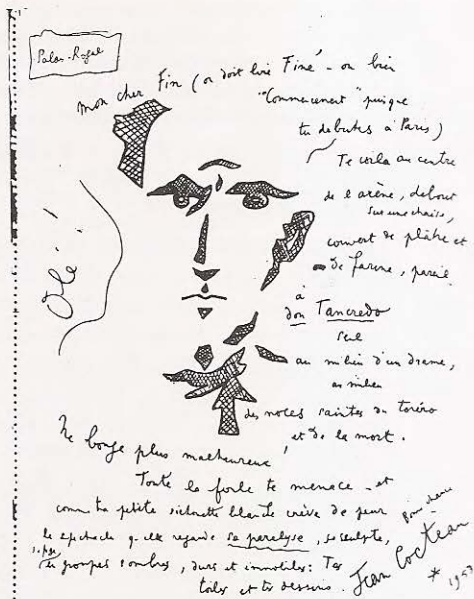 Palais-Royal
mon cher Fin (on doit lire Finé - ou bien
"Commencement" puisque
tu debutes à Paris)
Te voila au centre
de l arène, debout
sur une chaise,
couvert de plâtre et
de farine, pareil
à
don Tancredo
seul
au milieu d'un drame,
au milieu
des noces saintes du toréro
et de la mort.
Olé!!
Ne bouge plus malheureux,
Toute la foule te menace - et
comme ta petite silhouette blanche crève de peur
le spectacle qu elle regarde se paralyse, se sculpte,
groupes sombres, durs et immobiles: Tes
toiles et tes dessins.
Jean Cocteau
* 1953